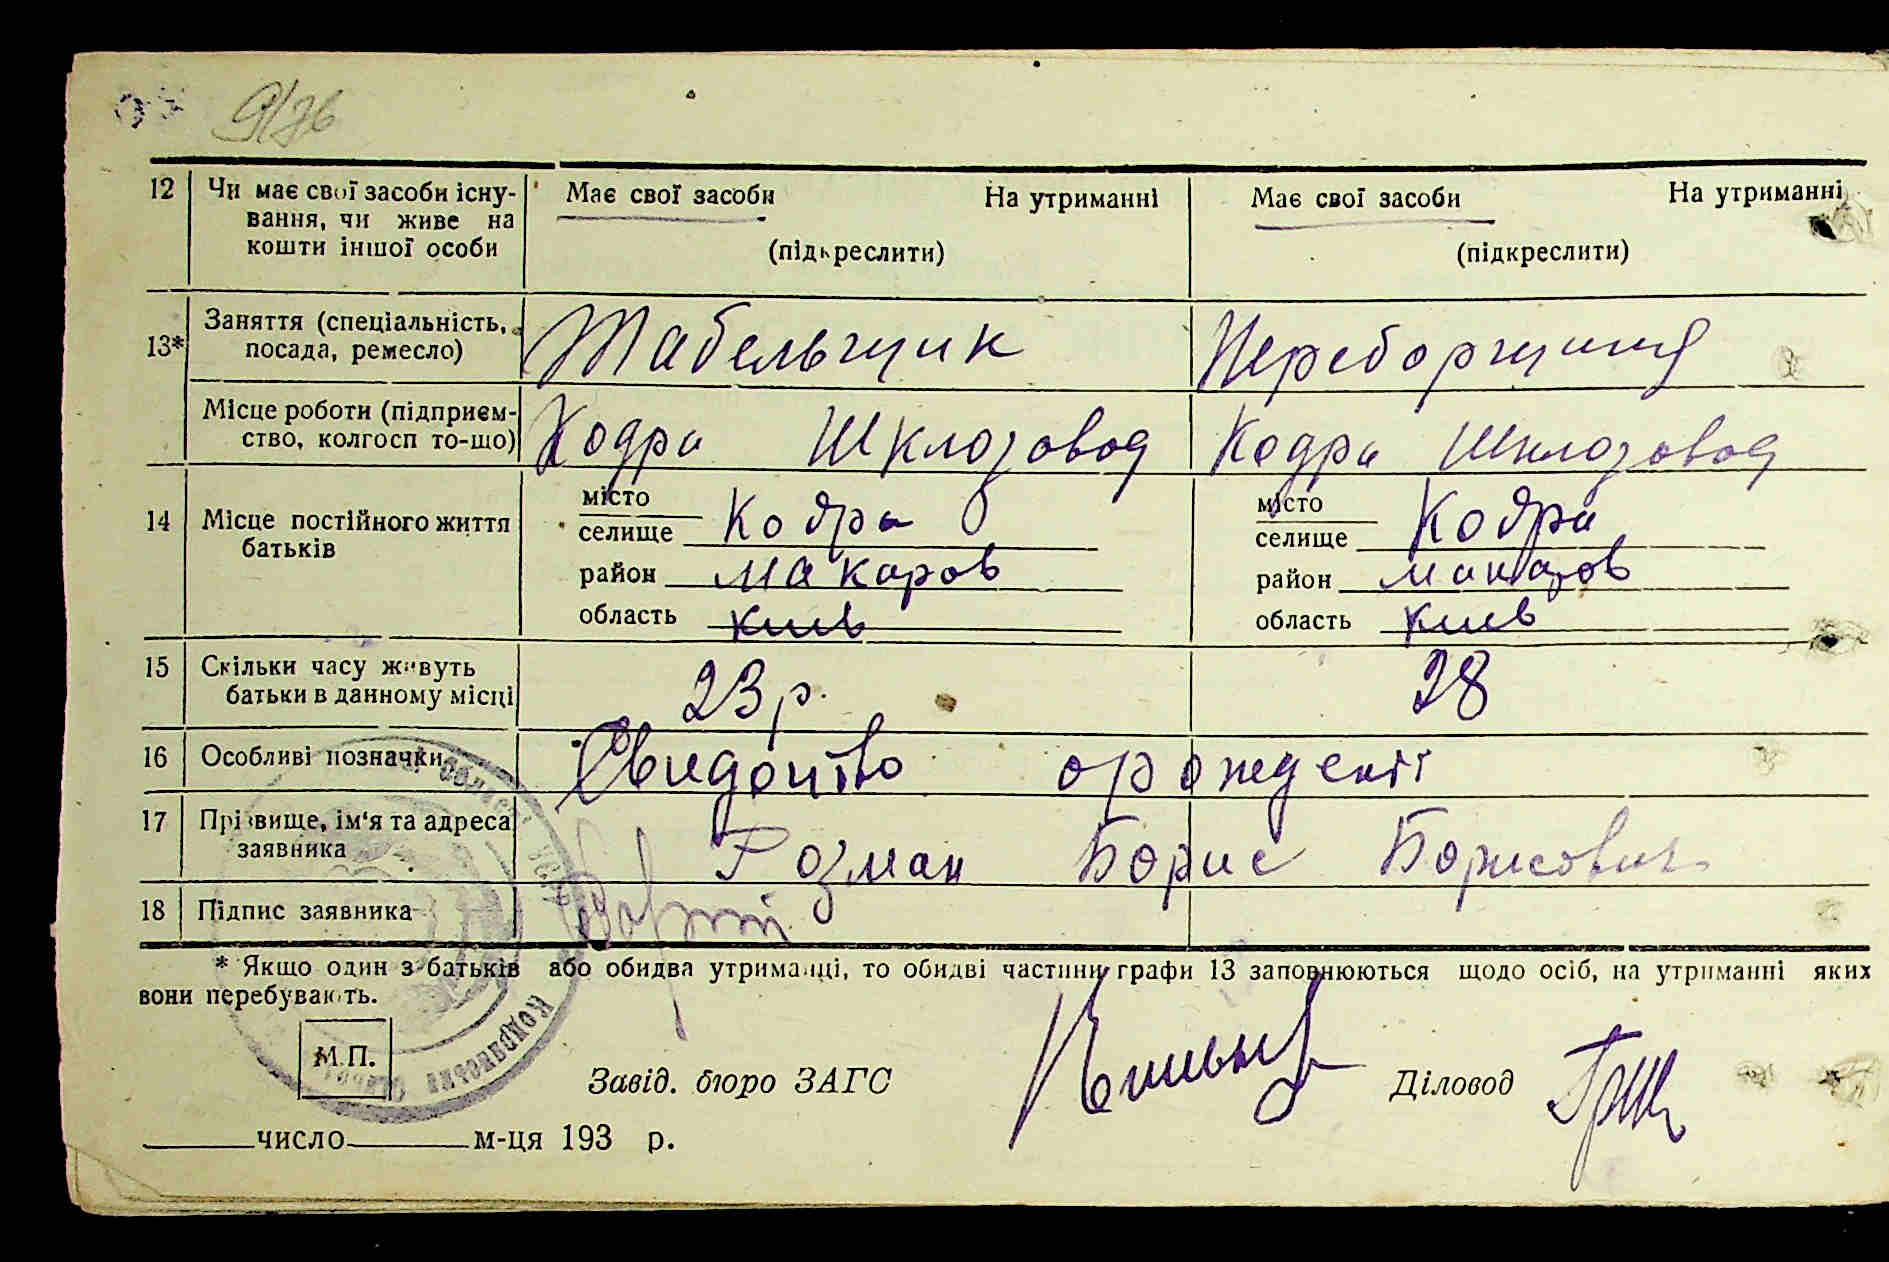 9/76
12 Чи має свої засоби існу- Має свої засоби На утриманні Має свої засоби На утриманні
вання, чи живе на
кошти іншої особи (підкреслити) (підкреслити)
13* Заняття (спеціальність, посада, ремесло) Табельчщик Переборщиця
Місце роботи (підприєм-
ство, колгосп то-що) Кодра Шклозовод Кодра Шклозовод
14 Місце постійного життя
батьків
місто
селище Кодра
район Макаров
область Киев
місто
селище Кодра
район Макаров
область Киев
15 Скільки часу живуть
батьки в данному місці 23 р. 28
16 Особливі позначки Свидоцтво орождениї
17 Прізвище, ім'я та адреса
заявника Розман Борис Борисович
18 Підпис заявника
* Якщо один з батьків або обидва утриманці, то обидві частини графи 13 заповнюються щодо осіб, на утриманні яких
вони перебувають.
М.П.
Завід. бюро ЗАГС Діловод
число м-ця 193 р.